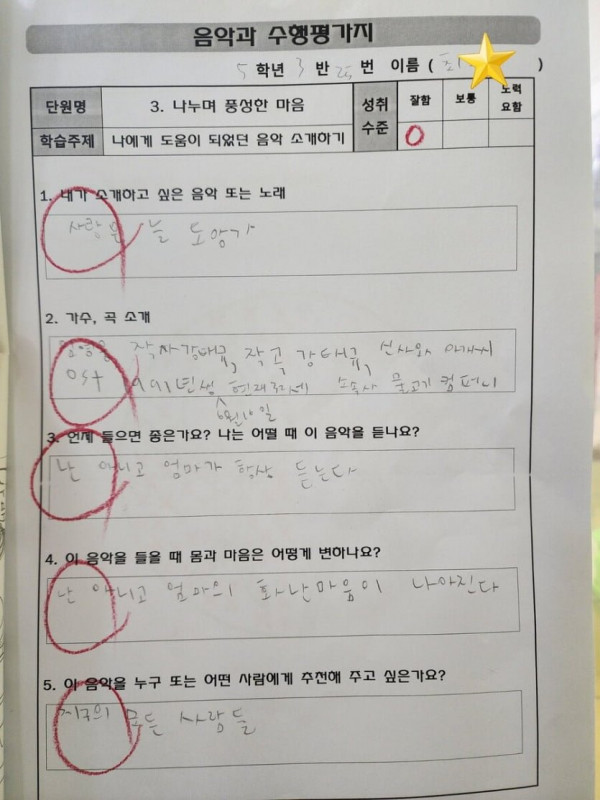 음악과 수행평가지
5 학년 3 반 번 이름 ( 최 )
단원명 3. 나누며 풍성한 마음 성취수준 잘함 보통 노력요함
학습주제 나에게 도움이 되었던 음악 소개하기 O
1. 내가 소개하고 싶은 음악 또는 노래
사랑은 늘 도망가
2. 가수, 곡 소개
임영웅 작사강태규, 작곡 강태규, 신사와 아가씨
OST 1991년생 현재 소속사 물고기 컴퍼니
6월16일
3. 언제 들으면 좋은가요? 나는 어떨 때 이 음악을 듣나요?
난 아니고 엄마가 항상 듣는다
4. 이 음악을 들을 때 몸과 마음은 어떻게 변하나요?
난 아니고 엄마의 화난마음이 나아진다
5. 이 음악을 누구 또는 어떤 사람에게 추천해 주고 싶은가요?
지구의 모든 사람들